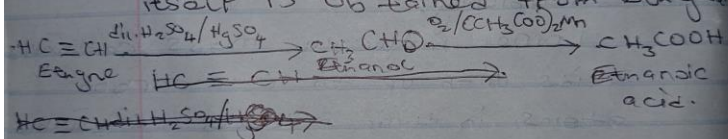 itself is obtained from
HC ≡ CH dil. H₂SO₄/HgSO₄ → CH₃CHO O₂/(CH₃COO)₂Mn → CH₃COOH
Ethyne Ethanol Ethanoic
HC ≡ CH →
acid.
HC ≡ CH dil H₂SO₄/Hg